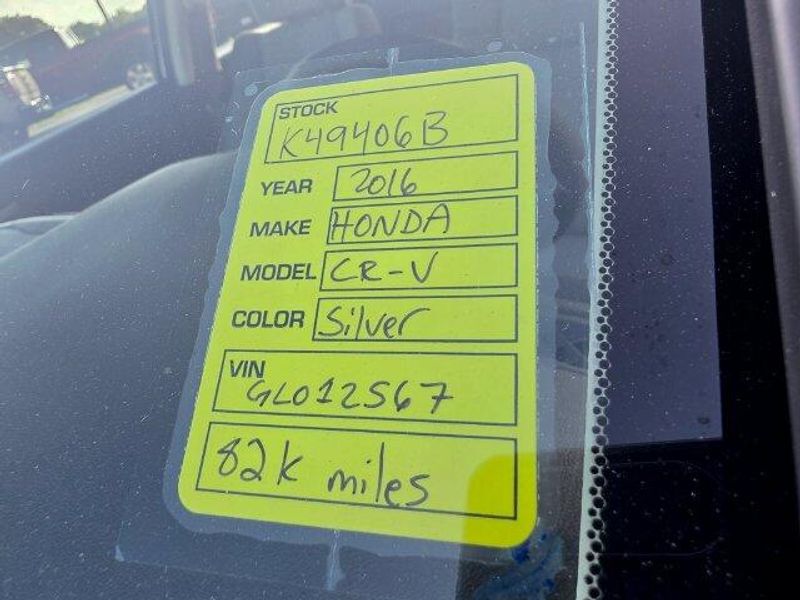 STOCK
K49406B
YEAR 2016
MAKE HONDA
MODEL CR-V
COLOR Silver
VIN
GL012567
82K miles